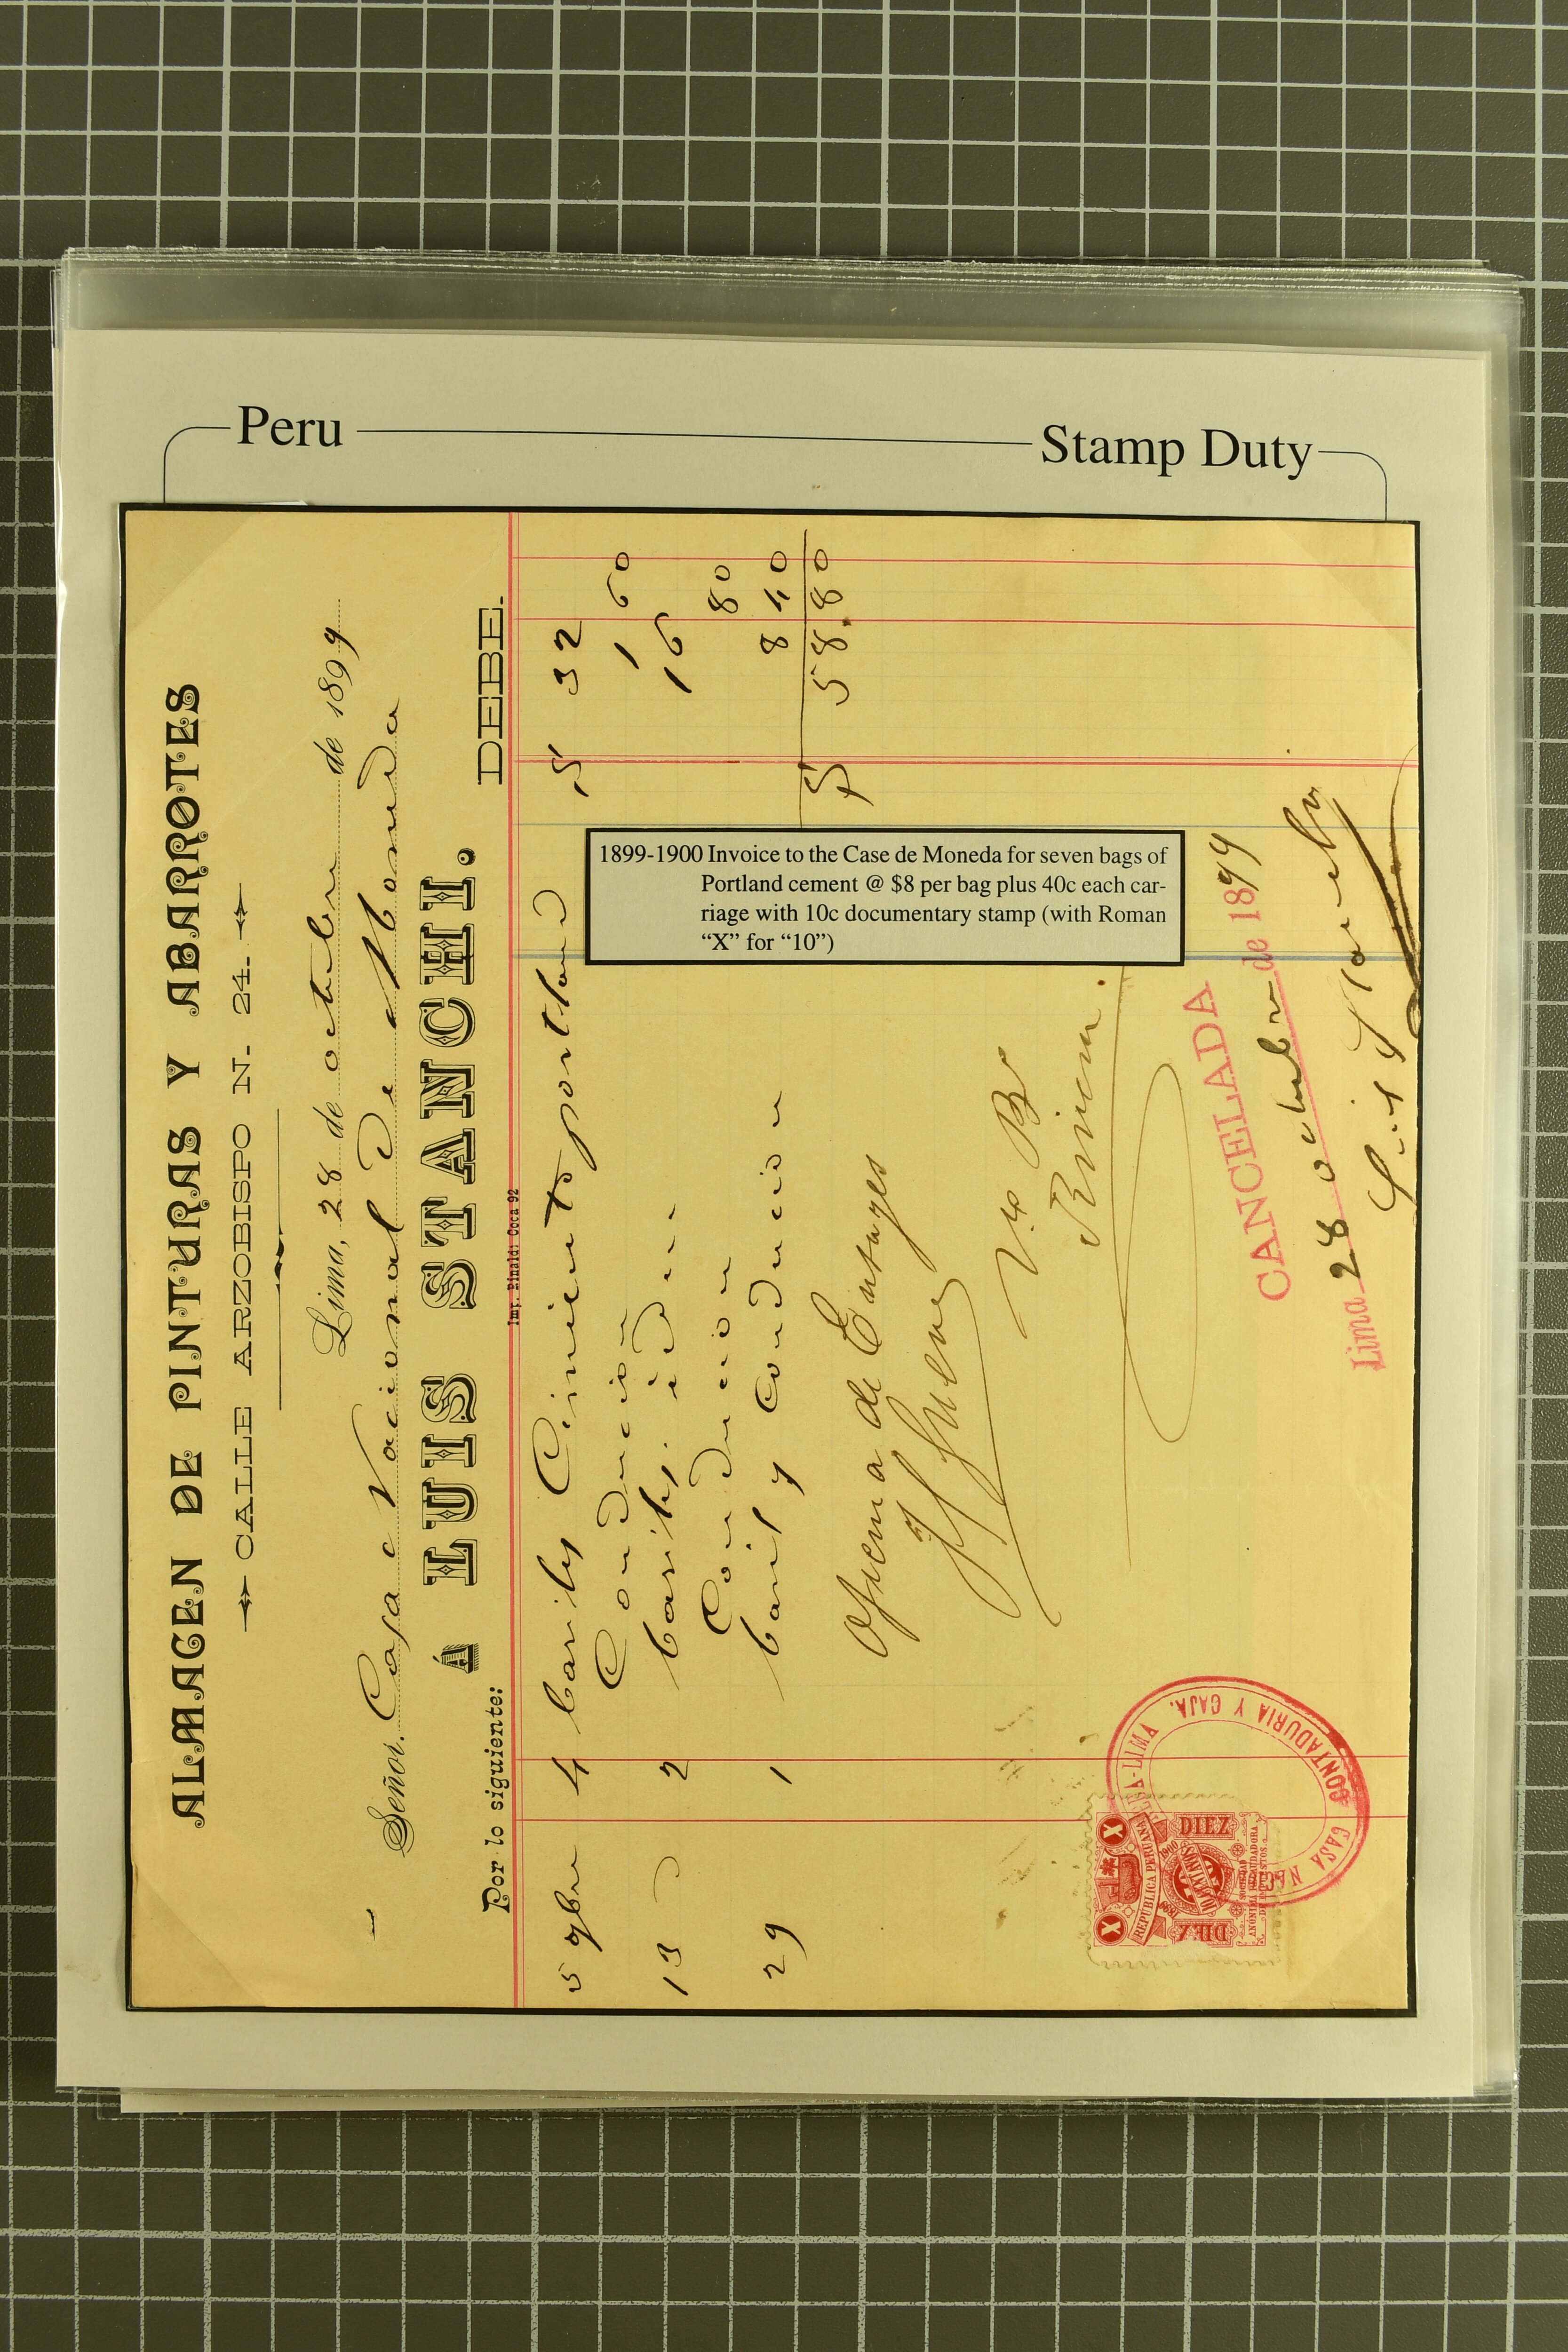 Peru
Stamp Duty
ALMACEN DE PINTURAS Y ABARROTES
CALLE ARZOBISPO N. 24.
Lima, 28 de octubre de 1899
Señor. Casa Nacional de Moneda
Á LUIS STANCHI.
Por lo siguiente: DEBE.
Imp. Rinaldi: Coca 92
5 9bre 4 bariles Cimiento portland S 32
Conducion 1 60
13 2 bariles. id. 16
Conducion 80
29 1 baril y Conducion 8 40
S 58.80
1899-1900 Invoice to the Case de Moneda for seven bags of
Portland cement @ $8 per bag plus 40c each car-
riage with 10c documentary stamp (with Roman
“X” for “10”)
Oficina de Ensayes
V° B°
CANCELADA
Lima 28 octubre de 1899
Luis Stanchi
X X
REPUBLICA PERUANA
1899 1900
DIEZ DIEZ
CENTAVOS
SOCIEDAD
ANÓNIMA RECAUDADORA
DE IMPUESTOS
LIMA
CONTADURIA Y CAJA.
CASA